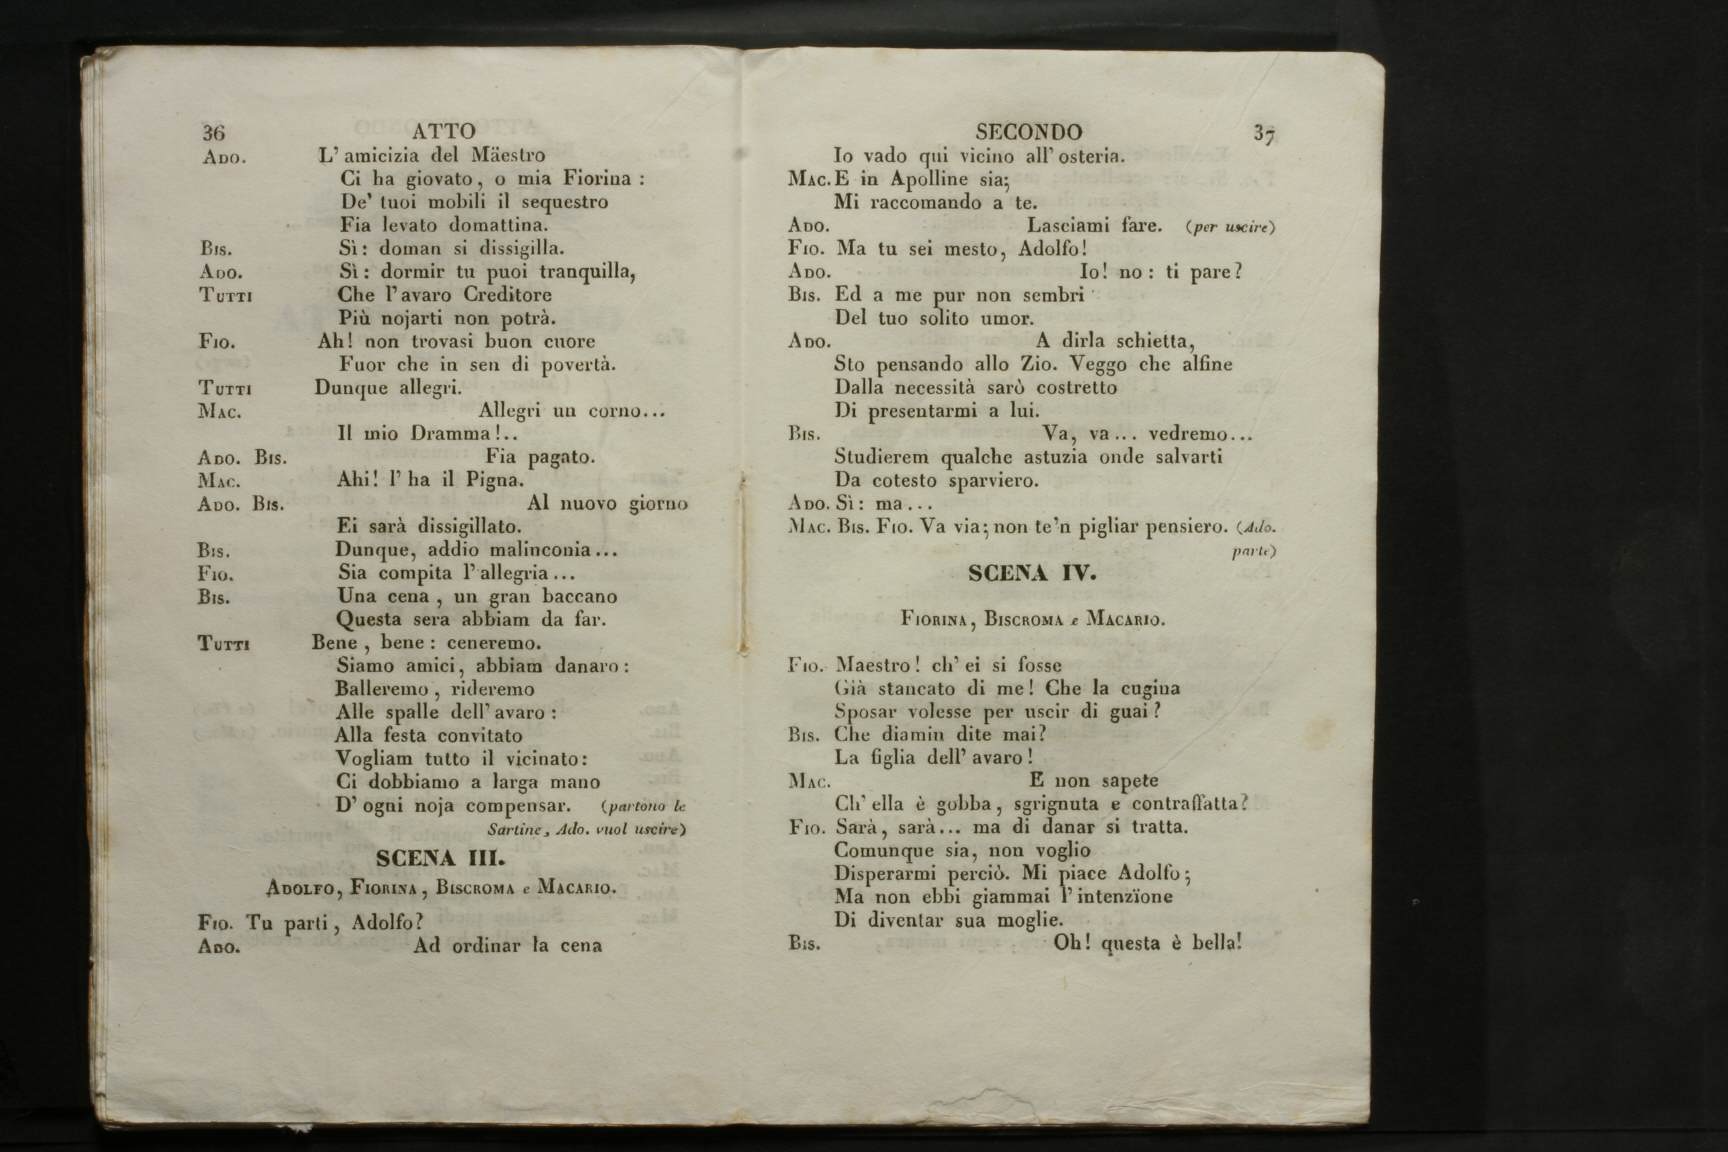 36 ATTO
ADO. L' amicizia del Mäestro
Ci ha giovato, o mia Fiorina :
De' tuoi mobili il sequestro
Fia levato domattina.
BIS. Sì: doman si dissigilla.
ADO. Sì: dormir tu puoi tranquilla,
TUTTI Che l'avaro Creditore
Più nojarti non potrà.
FIO. Ah! non trovasi buon cuore
Fuor che in sen di povertà.
TUTTI Dunque allegri.
MAC. Allegri un corno...
Il mio Dramma!..
ADO. BIS. Fia pagato.
MAC. Ahi! l'ha il Pigna.
ADO. BIS. Al nuovo giorno
Ei sarà dissigillato.
BIS. Dunque, addio malinconia...
FIO. Sia compita l'allegria...
BIS. Una cena, un gran baccano
Questa sera abbiam da far.
TUTTI Bene, bene: ceneremo.
Siamo amici, abbiam danaro:
Balleremo, rideremo
Alle spalle dell'avaro:
Alla festa convitato
Vogliam tutto il vicinato:
Ci dobbiamo a larga mano
D'ogni noja compensar. (partono le
Sartine, Ado. vuol uscire)
SCENA III.
ADOLFO, FIORINA, BISCROMA e MACARIO.
FIO. Tu parti, Adolfo?
ADO. Ad ordinar la cena
SECONDO 37
Io vado qui vicino all'osteria.
MAC. E in Apolline sia;
Mi raccomando a te.
ADO. Lasciami fare. (per uscire)
FIO. Ma tu sei mesto, Adolfo!
ADO. Io! no: ti pare?
BIS. Ed a me pur non sembri
Del tuo solito umor.
ADO. A dirla schietta,
Sto pensando allo Zio. Veggo che alfine
Dalla necessità sarò costretto
Di presentarmi a lui.
BIS. Va, va... vedremo...
Studierem qualche astuzia onde salvarti
Da cotesto sparviero.
ADO. Sì: ma...
MAC. BIS. FIO. Va via; non te'n pigliar pensiero. (Ado.
parte)
SCENA IV.
FIORINA, BISCROMA e MACARIO.
FIO. Maestro! ch'ei si fosse
Già stancato di me! Che la cugina
Sposar volesse per uscir di guai?
BIS. Che diamin dite mai?
La figlia dell'avaro!
MAC. E non sapete
Ch'ella è gobba, sgrignuta e contraffatta?
FIO. Sarà, sarà... ma di danar si tratta.
Comunque sia, non voglio
Disperarmi perciò. Mi piace Adolfo;
Ma non ebbi giammai l'intenzïone
Di diventar sua moglie.
BIS. Oh! questa è bella!